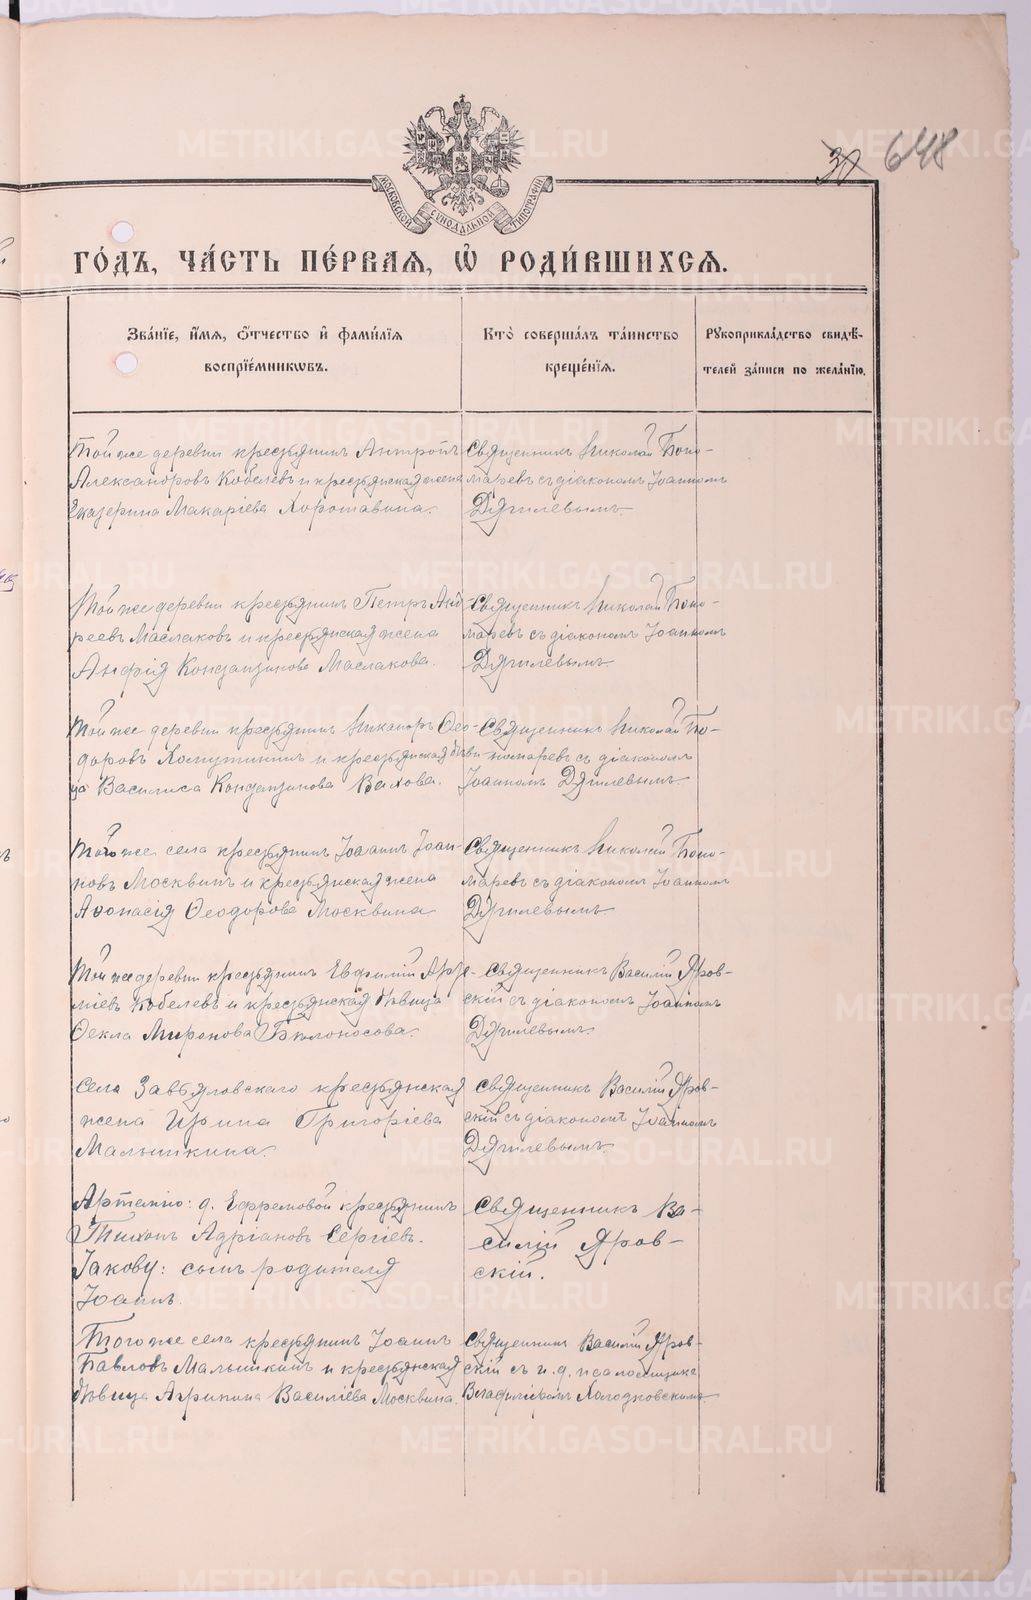 648
МОСКОВСКОЙ СѴНОДАЛЬНОЙ ТИПОГРАФІИ
ГО́ДЪ, ЧА́СТЬ ПЕ́РВАѦ, Ѽ РОДИ́ВШИХСѦ.
Зва́нїе, и҆́мѧ, ѻ҆́тчество и҆ фами́лїѧ
воспрїе́мникѡвъ.
Кто̀ соверша́лъ та́инство
креще́нїѧ.
Рꙋкоприкла́дство свидѣ́-
телей за́писи по жела́нїю.
Той же деревни крестьянинъ Антропъ
Александровъ Кобелевъ и крестьянская жена
Екатерина Макаріева Хорошавина.
Священникъ Николай Поно-
маревъ съ діакономъ Іоанномъ
Дягилевымъ.
Той же деревни крестьянинъ Петръ Анд-
реевъ Маслаковъ и крестьянская жена
Анфія Кондратова Маслакова.
Священникъ Николай Поно-
маревъ съ діакономъ Іоанномъ
Дягилевымъ.
Той же деревни крестьянинъ Никаноръ Ѳео-
доровъ Хомутининъ и крестьянская дѣви-
ца Василиса Вахова.
Священникъ Николай По-
номаревъ съ діакономъ
Іоанномъ Дягилевымъ.
Того же села крестьянинъ Іоаннъ Іоан-
новъ Москвинъ и крестьянская жена
Аѳонасія Ѳеодорова Москвина.
Священникъ Николай Поно-
маревъ съ діакономъ Іоанномъ
Дягилевымъ.
Той же деревни крестьянинъ Евфимій Арте-
міевъ Кобелевъ и крестьянская дѣвица
Ѳекла Миронова Бѣлоносова.
Священникъ Василій Яров-
скій съ діакономъ Іоанномъ
Дягилевымъ.
Села Завьяловскаго крестьянская
жена Ирина Григоріева
Малышкина.
Священникъ Василій Яров-
скій съ діакономъ Іоанномъ
Дягилевымъ.
Артемію: д. Ефремовой крестьянинъ
Тихонъ Адріановъ Сергіевъ.
Іакову: сынъ родителя
Іоаннъ.
Священникъ Ва-
силій Яров-
скій.
Того же села крестьянинъ Іоаннъ
Павловъ Малышкинъ и крестьянская
дѣвица Агрипина Василіева Москвина.
Священникъ Василій Яров-
скій съ и. д. псаломщика
Владиміромъ Холодковскимъ.